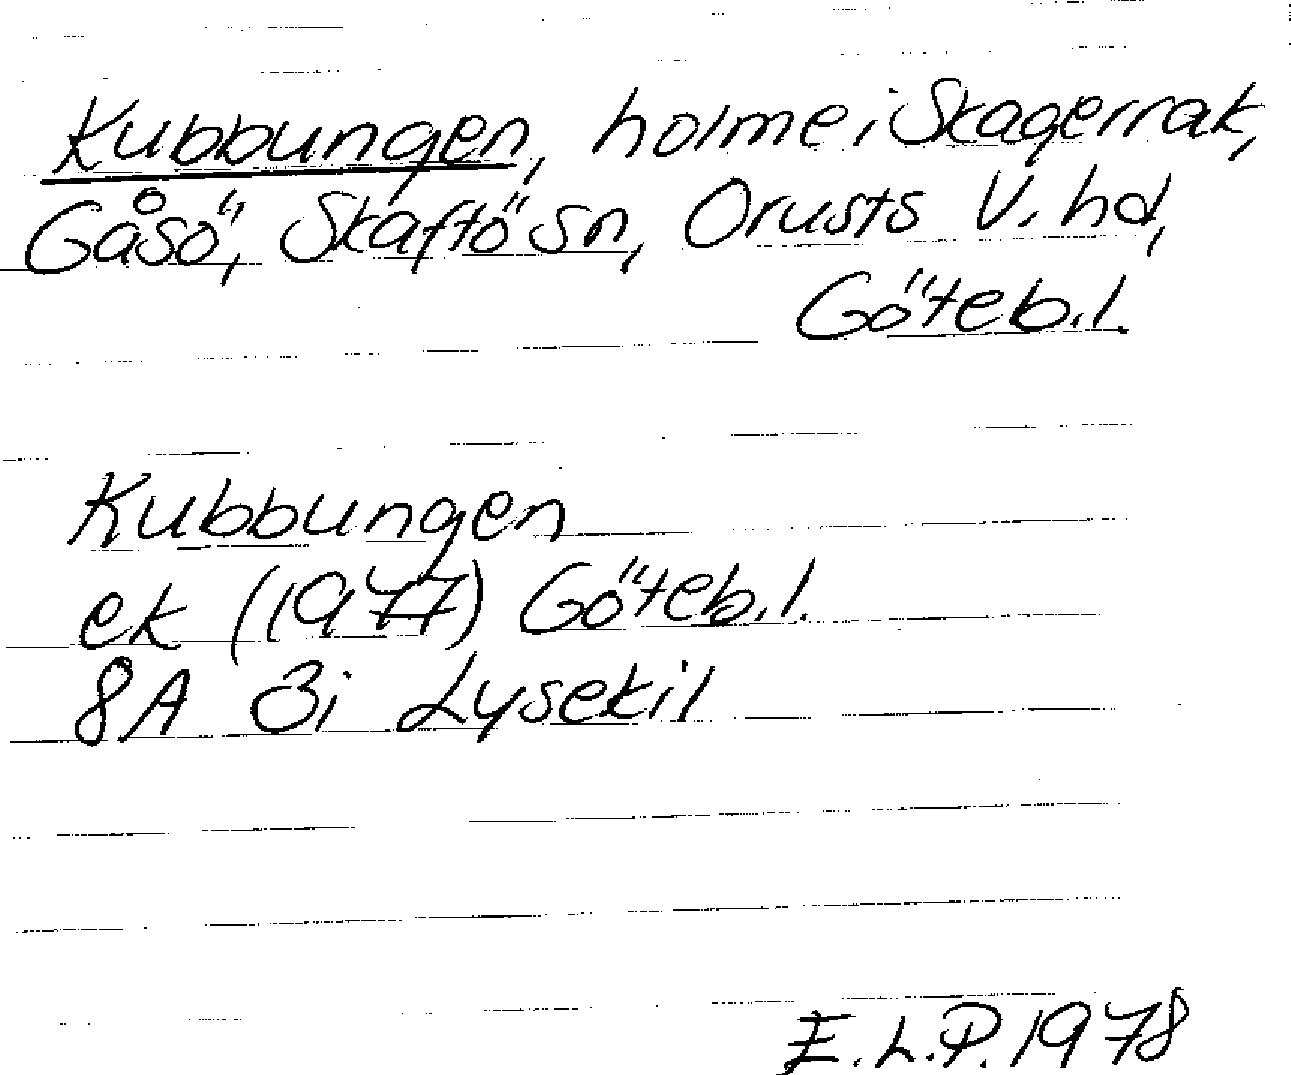 Kubbungen, holme i Skagerrak,
Gåsö, Skaftö sn, Orusts V. hd,
Göteb.l.
Kubbungen
ek (1977) Göteb.l.
8A 3i Lysekil
E.L.P. 1978